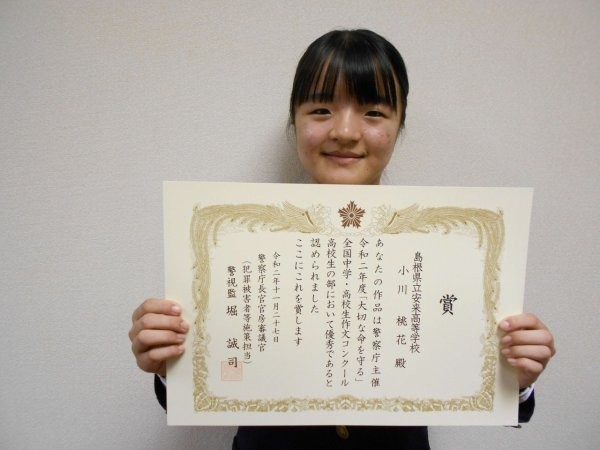 賞
島根県立安来高等学校
小川桃花殿
あなたの作品は警察庁主催
令和二年度「大切な命を守る」
全国中学・高校生作文コンクール
高校生の部において優秀であると
認められました
ここにこれを賞します
令和二年十一月二十七日
警察庁長官官房審議官
（犯罪被害者等施策担当）
警視監 堀誠司